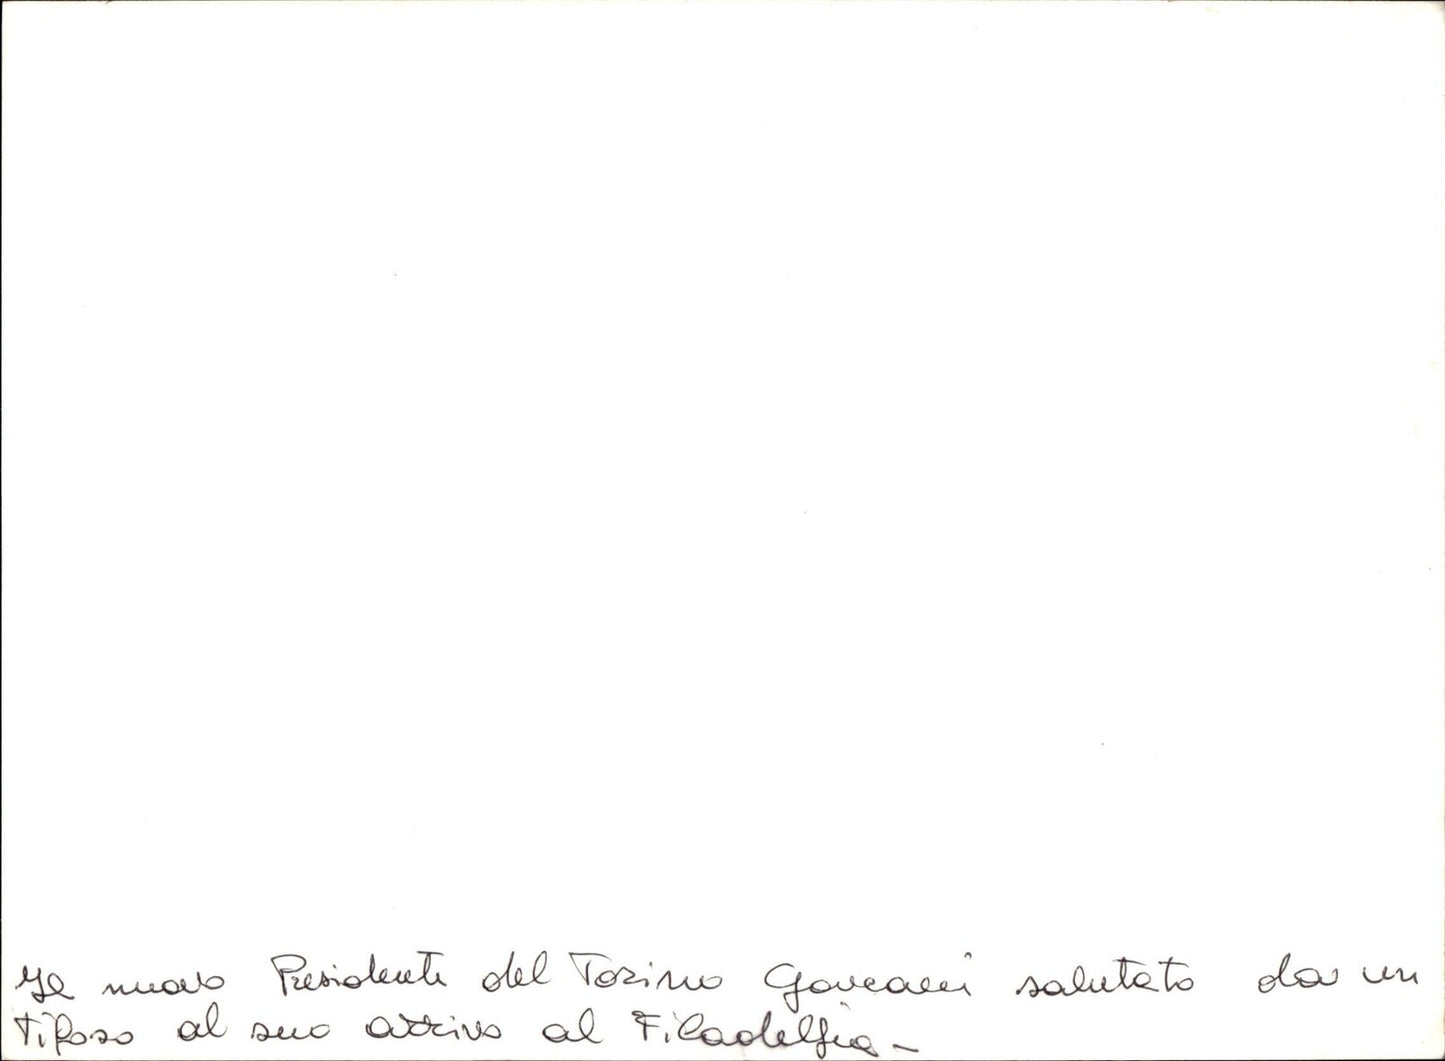 Il nuovo Presidente del Torino Goveani salutato da un
tifoso al suo arrivo al Filadelfia -